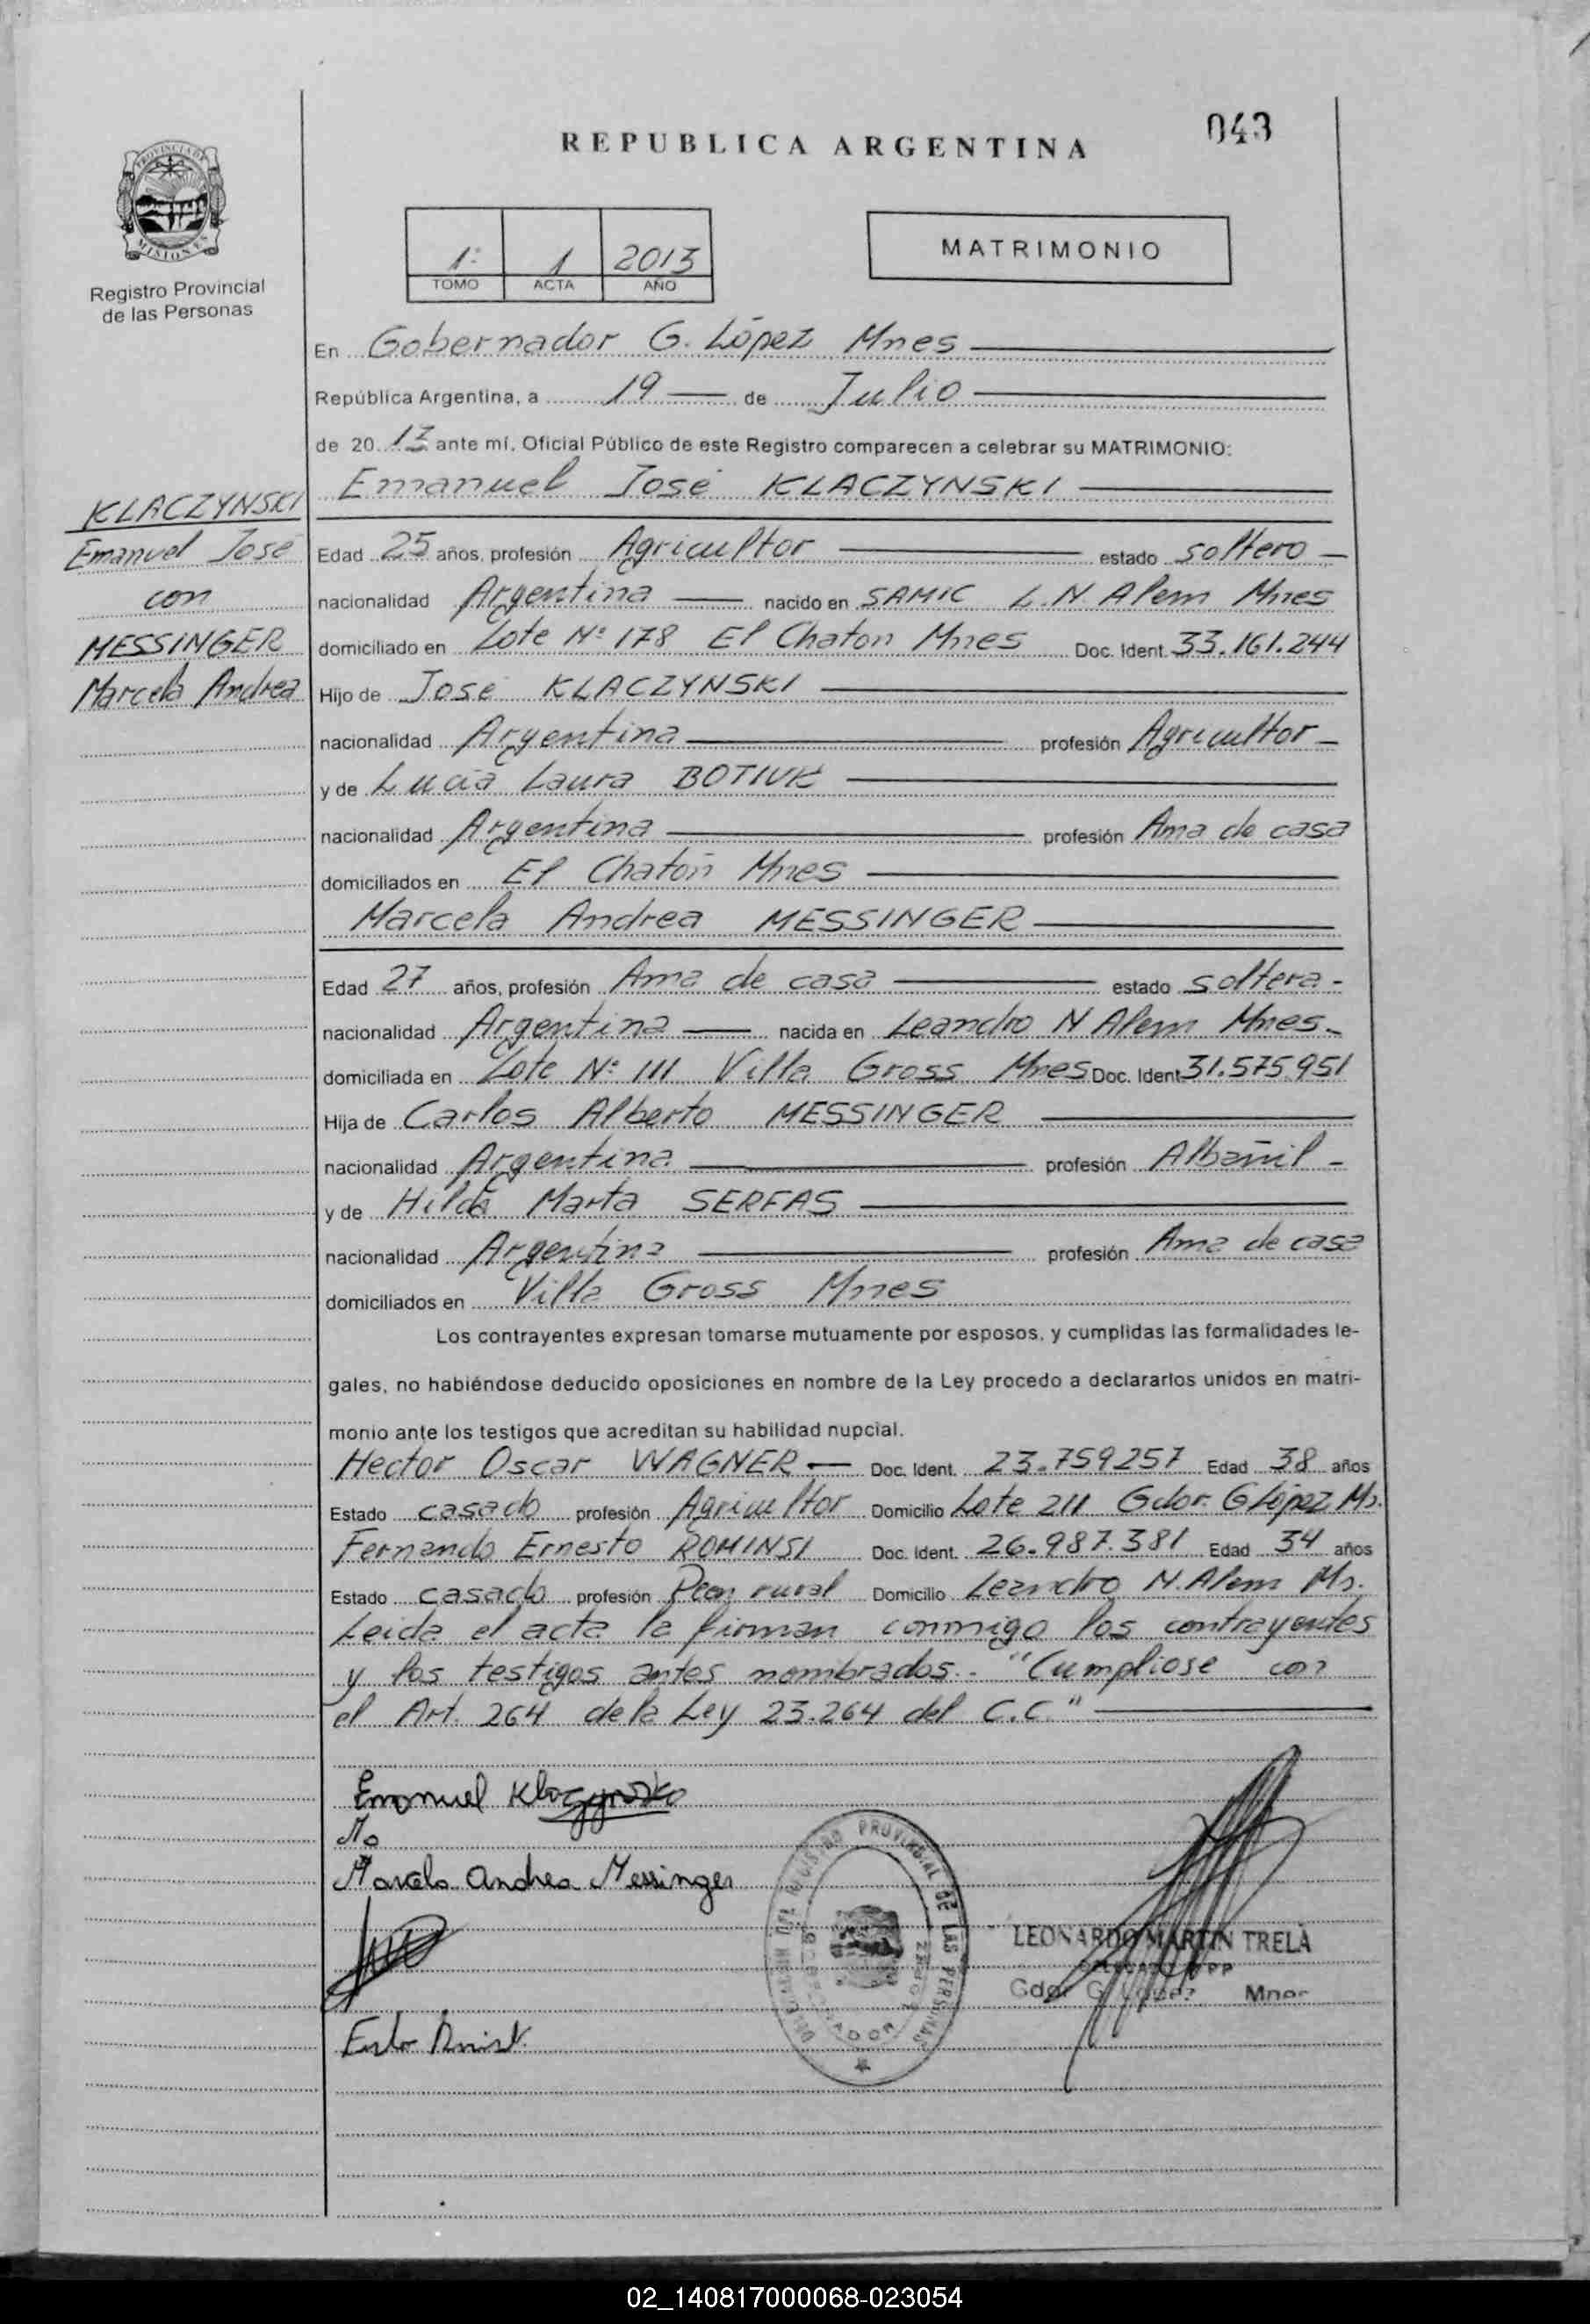 043
REPUBLICA ARGENTINA
PROVINCIA DE
MISIONES
Registro Provincial
de las Personas
1º 1 2013
TOMO ACTA AÑO
MATRIMONIO
En Gobernador G. López Mnes
República Argentina, a 19 de Julio
de 20 13 ante mí, Oficial Público de este Registro comparecen a celebrar su MATRIMONIO:
Emanuel José KLACZYNSKI
KLACZYNSKI
Emanuel José
con
MESSINGER
Marcela Andrea
Edad 25 años, profesión Agricultor estado soltero
nacionalidad Argentina nacido en SAMIC L.N. Alem Mnes
domiciliado en Lote Nº 178 El Chaton Mnes Doc. Ident. 33.161.244
Hijo de José KLACZYNSKI
nacionalidad Argentina profesión Agricultor
y de Lucia Laura BOTIUK
nacionalidad Argentina profesión Ama de casa
domiciliados en El Chatón Mnes
Marcela Andrea MESSINGER
Edad 27 años, profesión Ama de casa estado soltera
nacionalidad Argentina nacida en Leandro N Alem Mnes
domiciliada en Lote Nº 111 Villa Gross Mnes Doc. Ident 31.575.951
Hija de Carlos Alberto MESSINGER
nacionalidad Argentina profesión Albañil
y de Hilda Marta SERFAS
nacionalidad Argentina profesión Ama de casa
domiciliados en Villa Gross Mnes
Los contrayentes expresan tomarse mutuamente por esposos, y cumplidas las formalidades le-
gales, no habiéndose deducido oposiciones en nombre de la Ley procedo a declararlos unidos en matri-
monio ante los testigos que acreditan su habilidad nupcial.
Hector Oscar WAGNER Doc. Ident. 23.759257 Edad 38 años
Estado casado profesión Agricultor Domicilio Lote 211 Gdor. G López Ms.
Fernando Ernesto ROMINSI Doc. Ident. 26.987.381 Edad 34 años
Estado casado profesión Peon rural Domicilio Leandro N. Alem Ms.
Leida el acta la firman conmigo los contrayentes
y los testigos antes nombrados.- "Cumpliose con
el Art. 264 de la Ley 23.264 del C.C."
Emanuel
Marcela Andrea Messinger
PROVINCIAL DE LAS PERSONAS
LEONARDO MARTIN TRELA
Gdor G. López Mnes
02_140817000068-023054